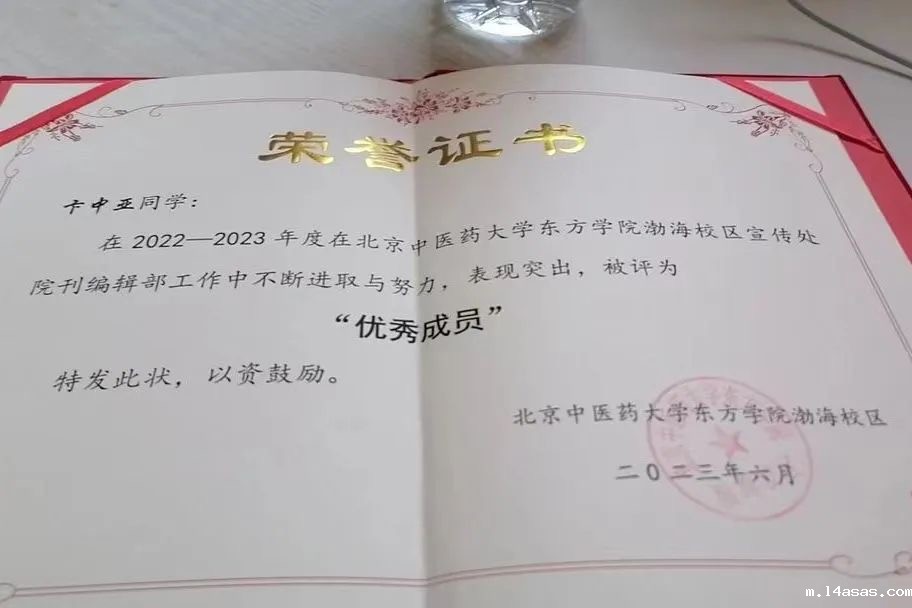 荣誉证书
卡中亚同学：
在 2022—2023 年度在北京中医药大学东方学院渤海校区宣传处
院刊编辑部工作中不断进取与努力，表现突出，被评为
“优秀成员”
特发此状，以资鼓励。
北京中医药大学东方学院渤海校区
二〇二三年六月
m.14asas.com